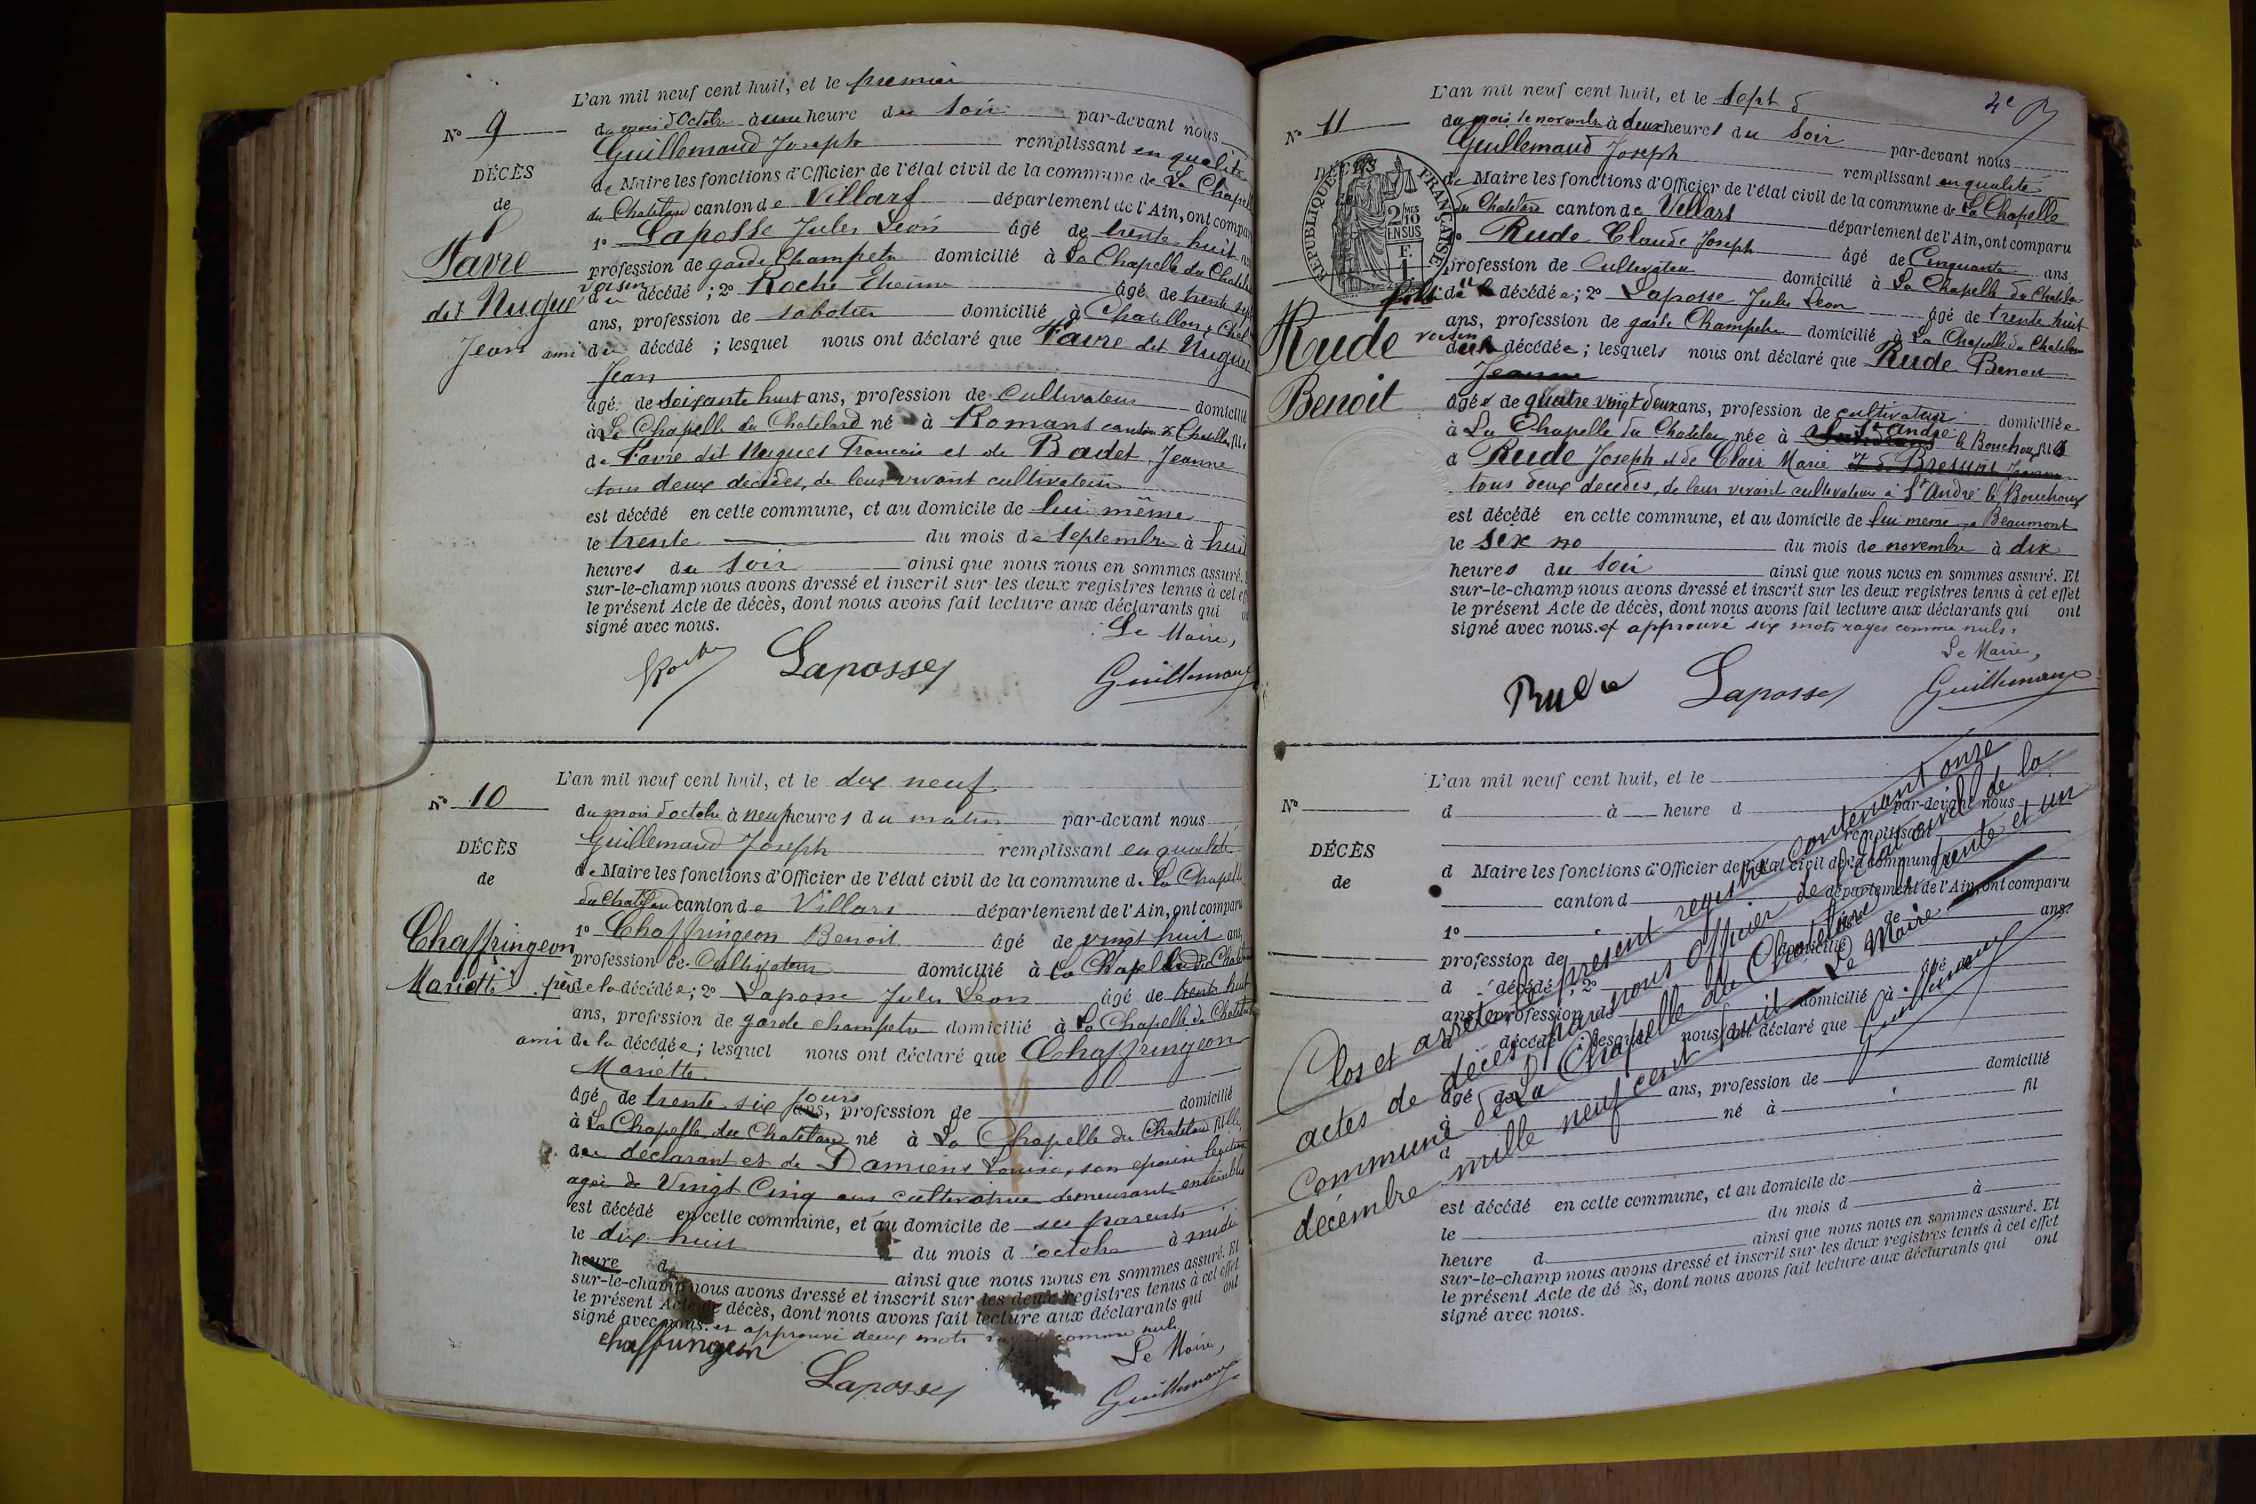 L'an mil neuf cent huit, et le premier
N° 9
du mois d'octobre à une heure du soir par-devant nous
Guillemaud Joseph remplissant en qualité
DÉCÈS
de Maire les fonctions d'Officier de l'état civil de la commune de La Chapelle
de
du Chatelard canton de Villars département de l'Ain, ont compar
1° Laposse Jules Léon âgé de trente huit
Favre
profession de garde Champetre domicilié à La Chapelle du Chatela
dit Nugue
voisin
du décédé ; 2° Roche Etienne âgé de trente
ans, profession de sabotier domicilié à Chatillon s Chal
Jean
ami du décédé ; lesquel nous ont déclaré que Favre dit Nuguet
Jean
âgé de soixante huit ans, profession de Cultivateur domicilié
à La Chapelle du Chatelard né à Romans canton de Chatillon fils
de Favre dit Nuguet Francois et de Badet Jeanne
tous deux décédés, de leur vivant cultivateurs
est décédé en cette commune, et au domicile de lui même
le trente du mois de septembre à huit
heures du soir ainsi que nous nous en sommes assuré.
sur-le-champ nous avons dressé et inscrit sur les deux registres tenus à cet ef
le présent Acte de décès, dont nous avons fait lecture aux déclarants qui o
signé avec nous.
Le Maire,
Roche Laposse Guillemaud
L'an mil neuf cent huit, et le dix neuf
N° 10
du mois d'octobre à neuf heures du matin par-devant nous
Guillemaud Joseph remplissant en qualité
DÉCÈS
de Maire les fonctions d'Officier de l'état civil de la commune de La Chapelle
de
du Chatelard canton de Villars département de l'Ain, ont comparu
Chaffringeon
1° Chaffringeon Benoit âgé de vingt huit ans
profession de Cultivateur domicilié à La Chapelle du Chatelard
Mariette
père de la décédée ; 2° Laposse Jules Leon âgé de trente huit
ans, profession de garde champetre domicilié à La Chapelle du Chatelard
ami de la décédée ; lesquel nous ont déclaré que Chaffringeon
Mariette
jours
âgé de trente six ans, profession de domicilié
à La Chapelle du Chatelard né à La Chapelle du Chatelard fille
du déclarant et de Damiens Louise, son epouse legitime
agée de Vingt Cinq ans cultivatrice demeurant ensemble
est décédé en cette commune, et au domicile de ses parents
le dix huit du mois d'octobre à midi
heure d ainsi que nous nous en sommes assuré. Et
sur-le-champ nous avons dressé et inscrit sur les deux registres tenus à cet effet
le présent Acte de décès, dont nous avons fait lecture aux déclarants qui ont
signé avec nous. et approuvé deux mots rayés comme nuls
Le Maire,
chaffringeon Laposse Guillemaud
L'an mil neuf cent huit, et le sept d
N° 11
du mois de novembre à deux heures du soir par-devant nous
Guillemaud Joseph remplissant en qualité
DÉCÈS
RÉPUBLIQUE FRANÇAISE
2/10 MES
EN SUS
F.
1
de Maire les fonctions d'Officier de l'état civil de la commune de La Chapelle
du Chatelard canton de Villars département de l'Ain, ont comparu
1° Rude Claude Joseph âgé de Cinquante ans
profession de Cultivateur domicilié à La Chapelle du Chatelar
fils du décédé ; 2° Laposse Jules Leon âgé de trente huit
Rude
ans, profession de garde Champetre domicilié à La Chapelle du Chatelar
voisin
du décédée ; lesquels nous ont déclaré que Rude Benoit
Jeanne
Benoit
âgé de quatre vingt deux ans, profession de cultivateur domiciliée
à La Chapelle du Chatelar née à St André le Bouchoux fils
d Rude Joseph et de Clair Marie
tous deux décédés, de leur vivant cultivateurs à St André le Bouchoux
est décédé en cette commune, et au domicile de lui meme a Beaumont
le six no du mois de novembre à dix
heures du soir ainsi que nous nous en sommes assuré. Et
sur-le-champ nous avons dressé et inscrit sur les deux registres tenus à cet effet
le présent Acte de décès, dont nous avons fait lecture aux déclarants qui ont
signé avec nous. et approuvé six mots rayés comme nuls.
Le Maire,
Rude Laposse Guillemaud
L'an mil neuf cent huit, et le
N°
d à heure d par-devant nous
remplissant
DÉCÈS
d Maire les fonctions d'Officier de l'état civil de la commune
de
canton d département de l'Ain, ont comparu
1° âgé de ans
profession de domicilié
d décédé ; 2° âgé de
ans, profession de domicilié à
d décédé ; lesquel nous ont déclaré que
âgé de ans, profession de domicilié
à né à fil
d
est décédé en cette commune, et au domicile de
le du mois d à
heure d ainsi que nous nous en sommes assuré. Et
sur-le-champ nous avons dressé et inscrit sur les deux registres tenus à cet effet
le présent Acte de décès, dont nous avons fait lecture aux déclarants qui ont
signé avec nous.
Clos et arreté le present registre contenant onze
actes de décès, par nous officier de l'état civil de la
Commune de La Chapelle du Chatelard le trente et un
décembre mille neuf cent huit Le Maire
Guillemaud